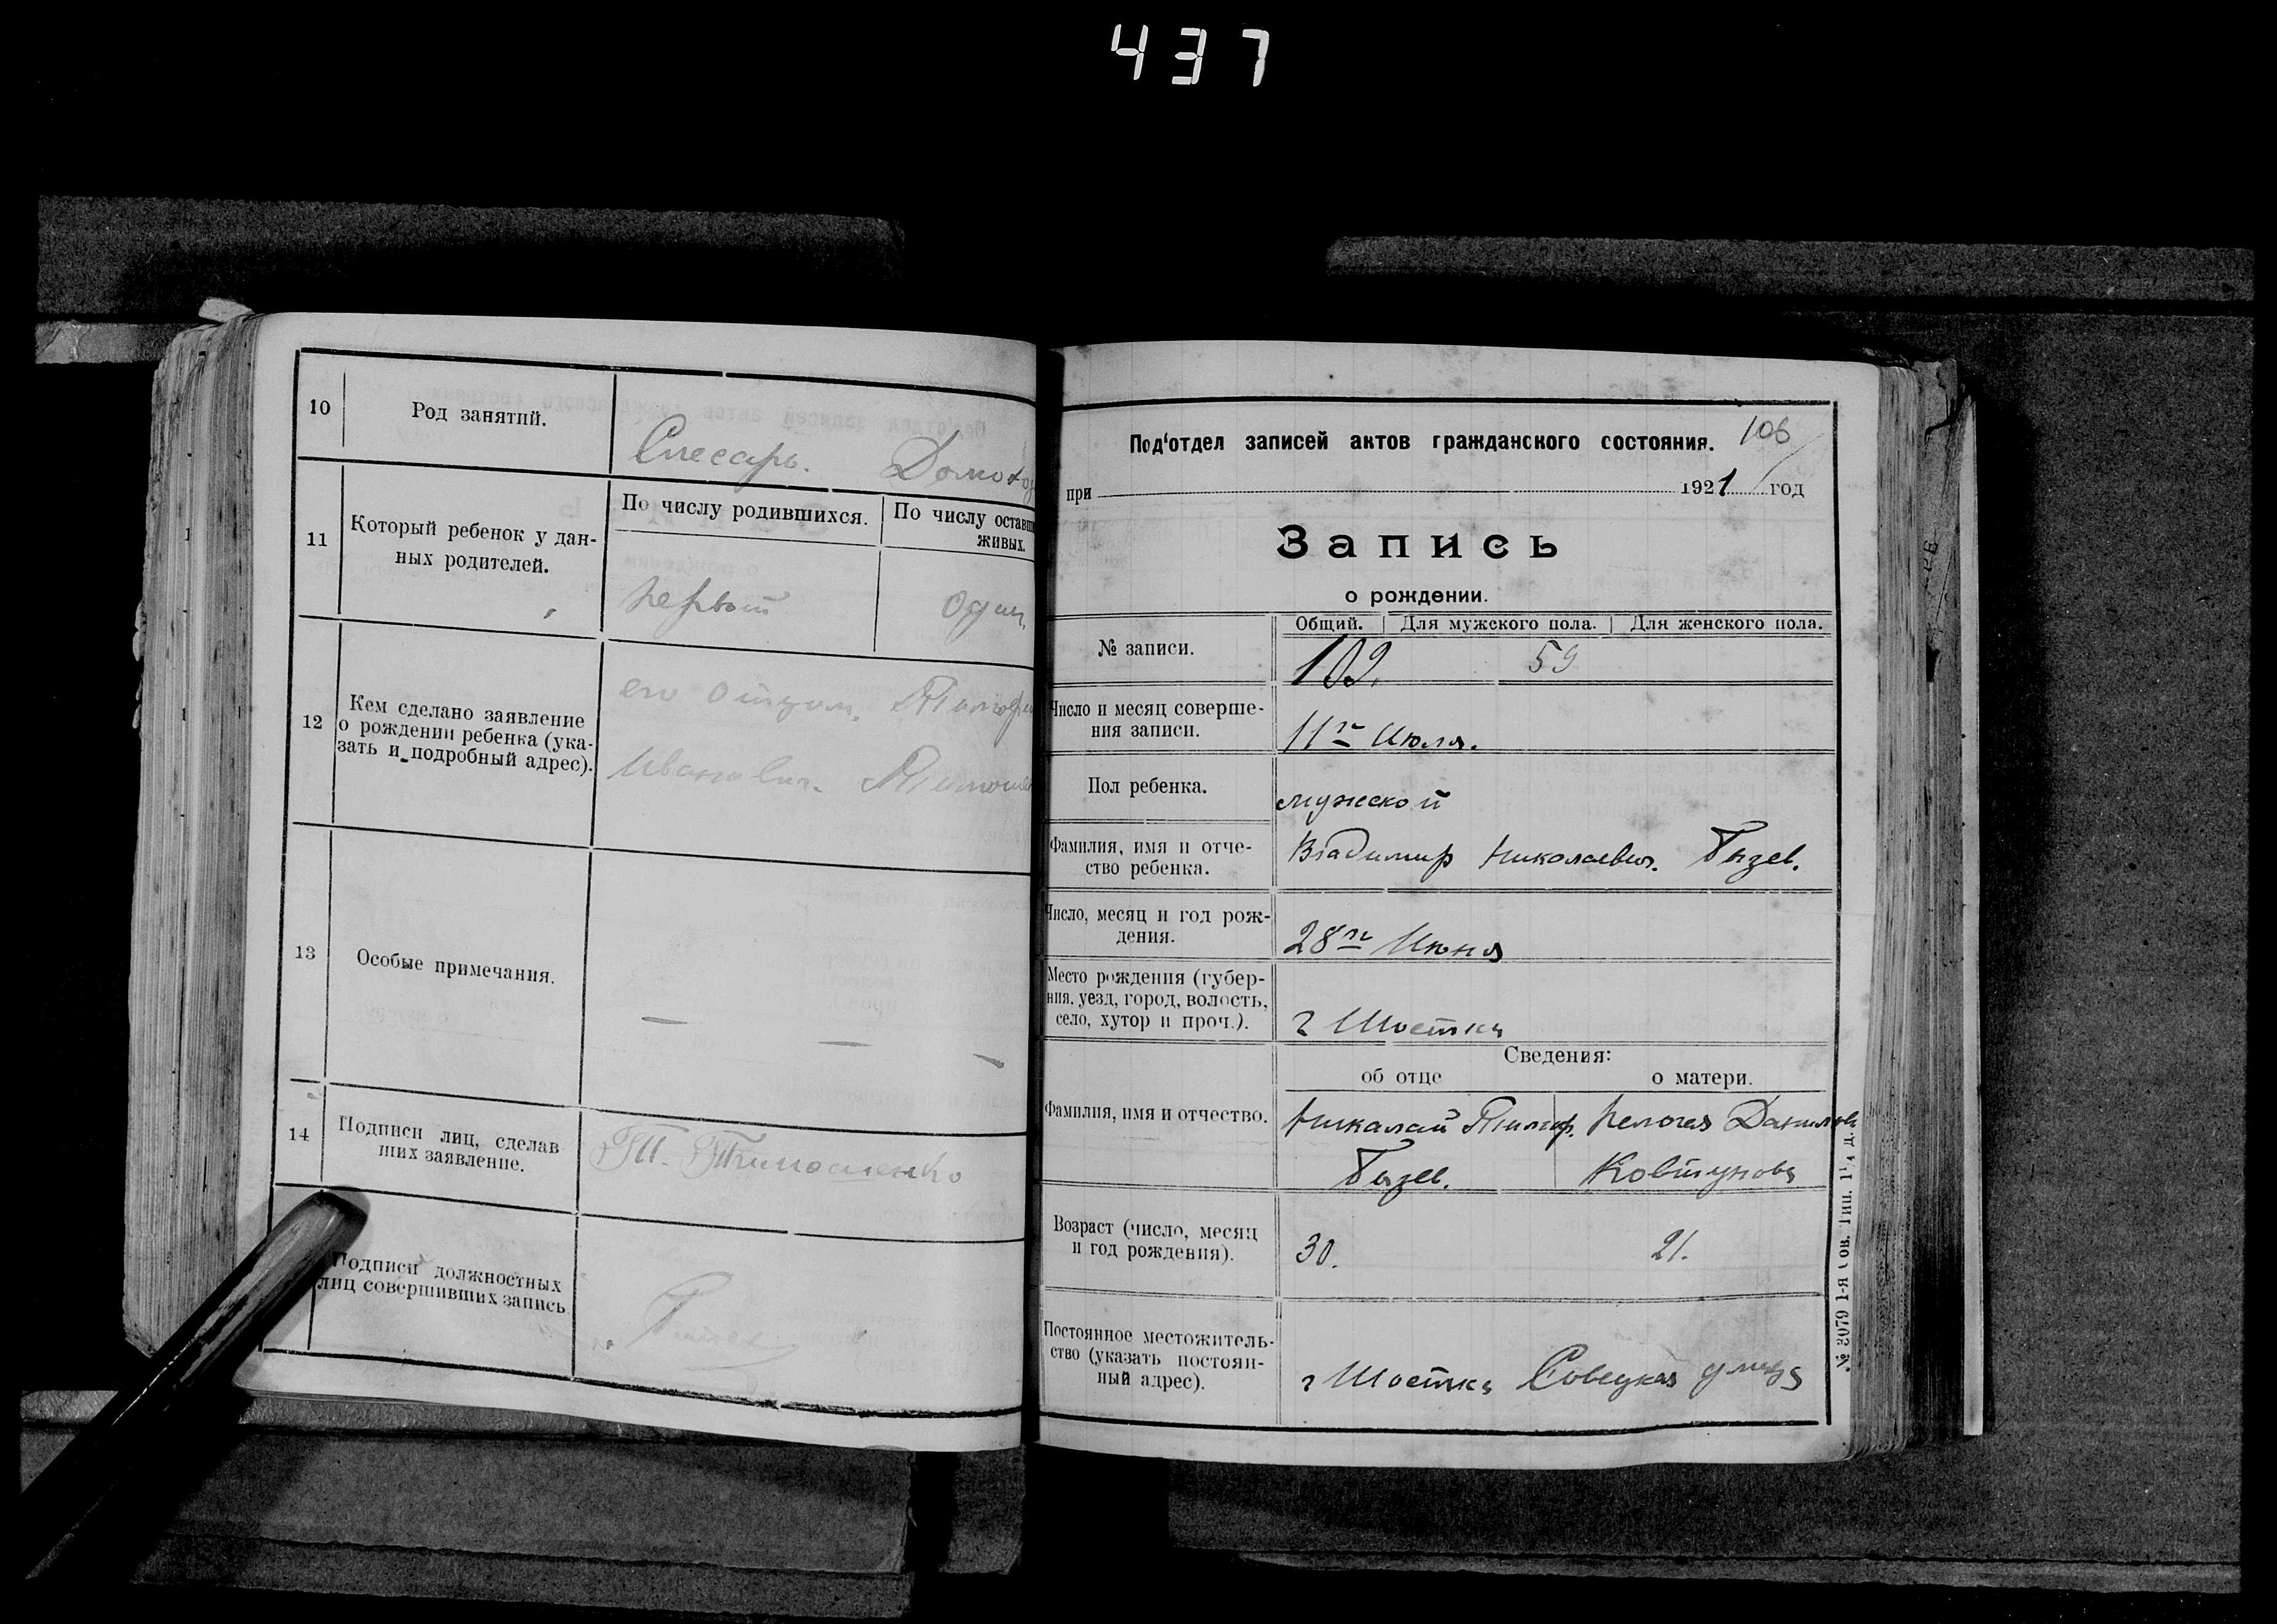 437
10 Род занятий. Слесарь. Домохоз
11 Который ребенок у дан-
ных родителей.
По числу родившихся. По числу оставш
живых.
первый один
12 Кем сделано заявление
о рождении ребенка (ука-
зать и подробный адрес).
его отцом. Тимофе
Иванович. Тимоше
13 Особые примечания.
— — —
14 Подписи лиц, сделав
ших заявление.
Т. Тимошенко
Подписи должностных
лиц совершивших запись.
Под'отдел записей актов гражданского состояния. 106
при 1921 год
Запись
о рождении.
№ записи.
Общий. Для мужского пола. Для женского пола.
109. 59
Число и месяц соверше-
ния записи.
11го Июля.
Пол ребенка.
мужской
Фамилия, имя и отче-
ство ребенка.
Владимир Николаевич.
Число, месяц и год рож-
дения.
28го Июня
Место рождения (губер-
ния, уезд, город, волость,
село, хутор и проч.).
г Шостка
Сведения:
об отце о матери.
Фамилия, имя и отчество.
Николай Тимоф. Пелагея Данилов
Ковтунова
Возраст (число, месяц
и год рождения).
30. 21.
Постоянное местожитель-
ство (указать постоян-
ный адрес).
г Шостка Советская улица
№ 3079 1-я Сов. Тип. 1¹/4 д.